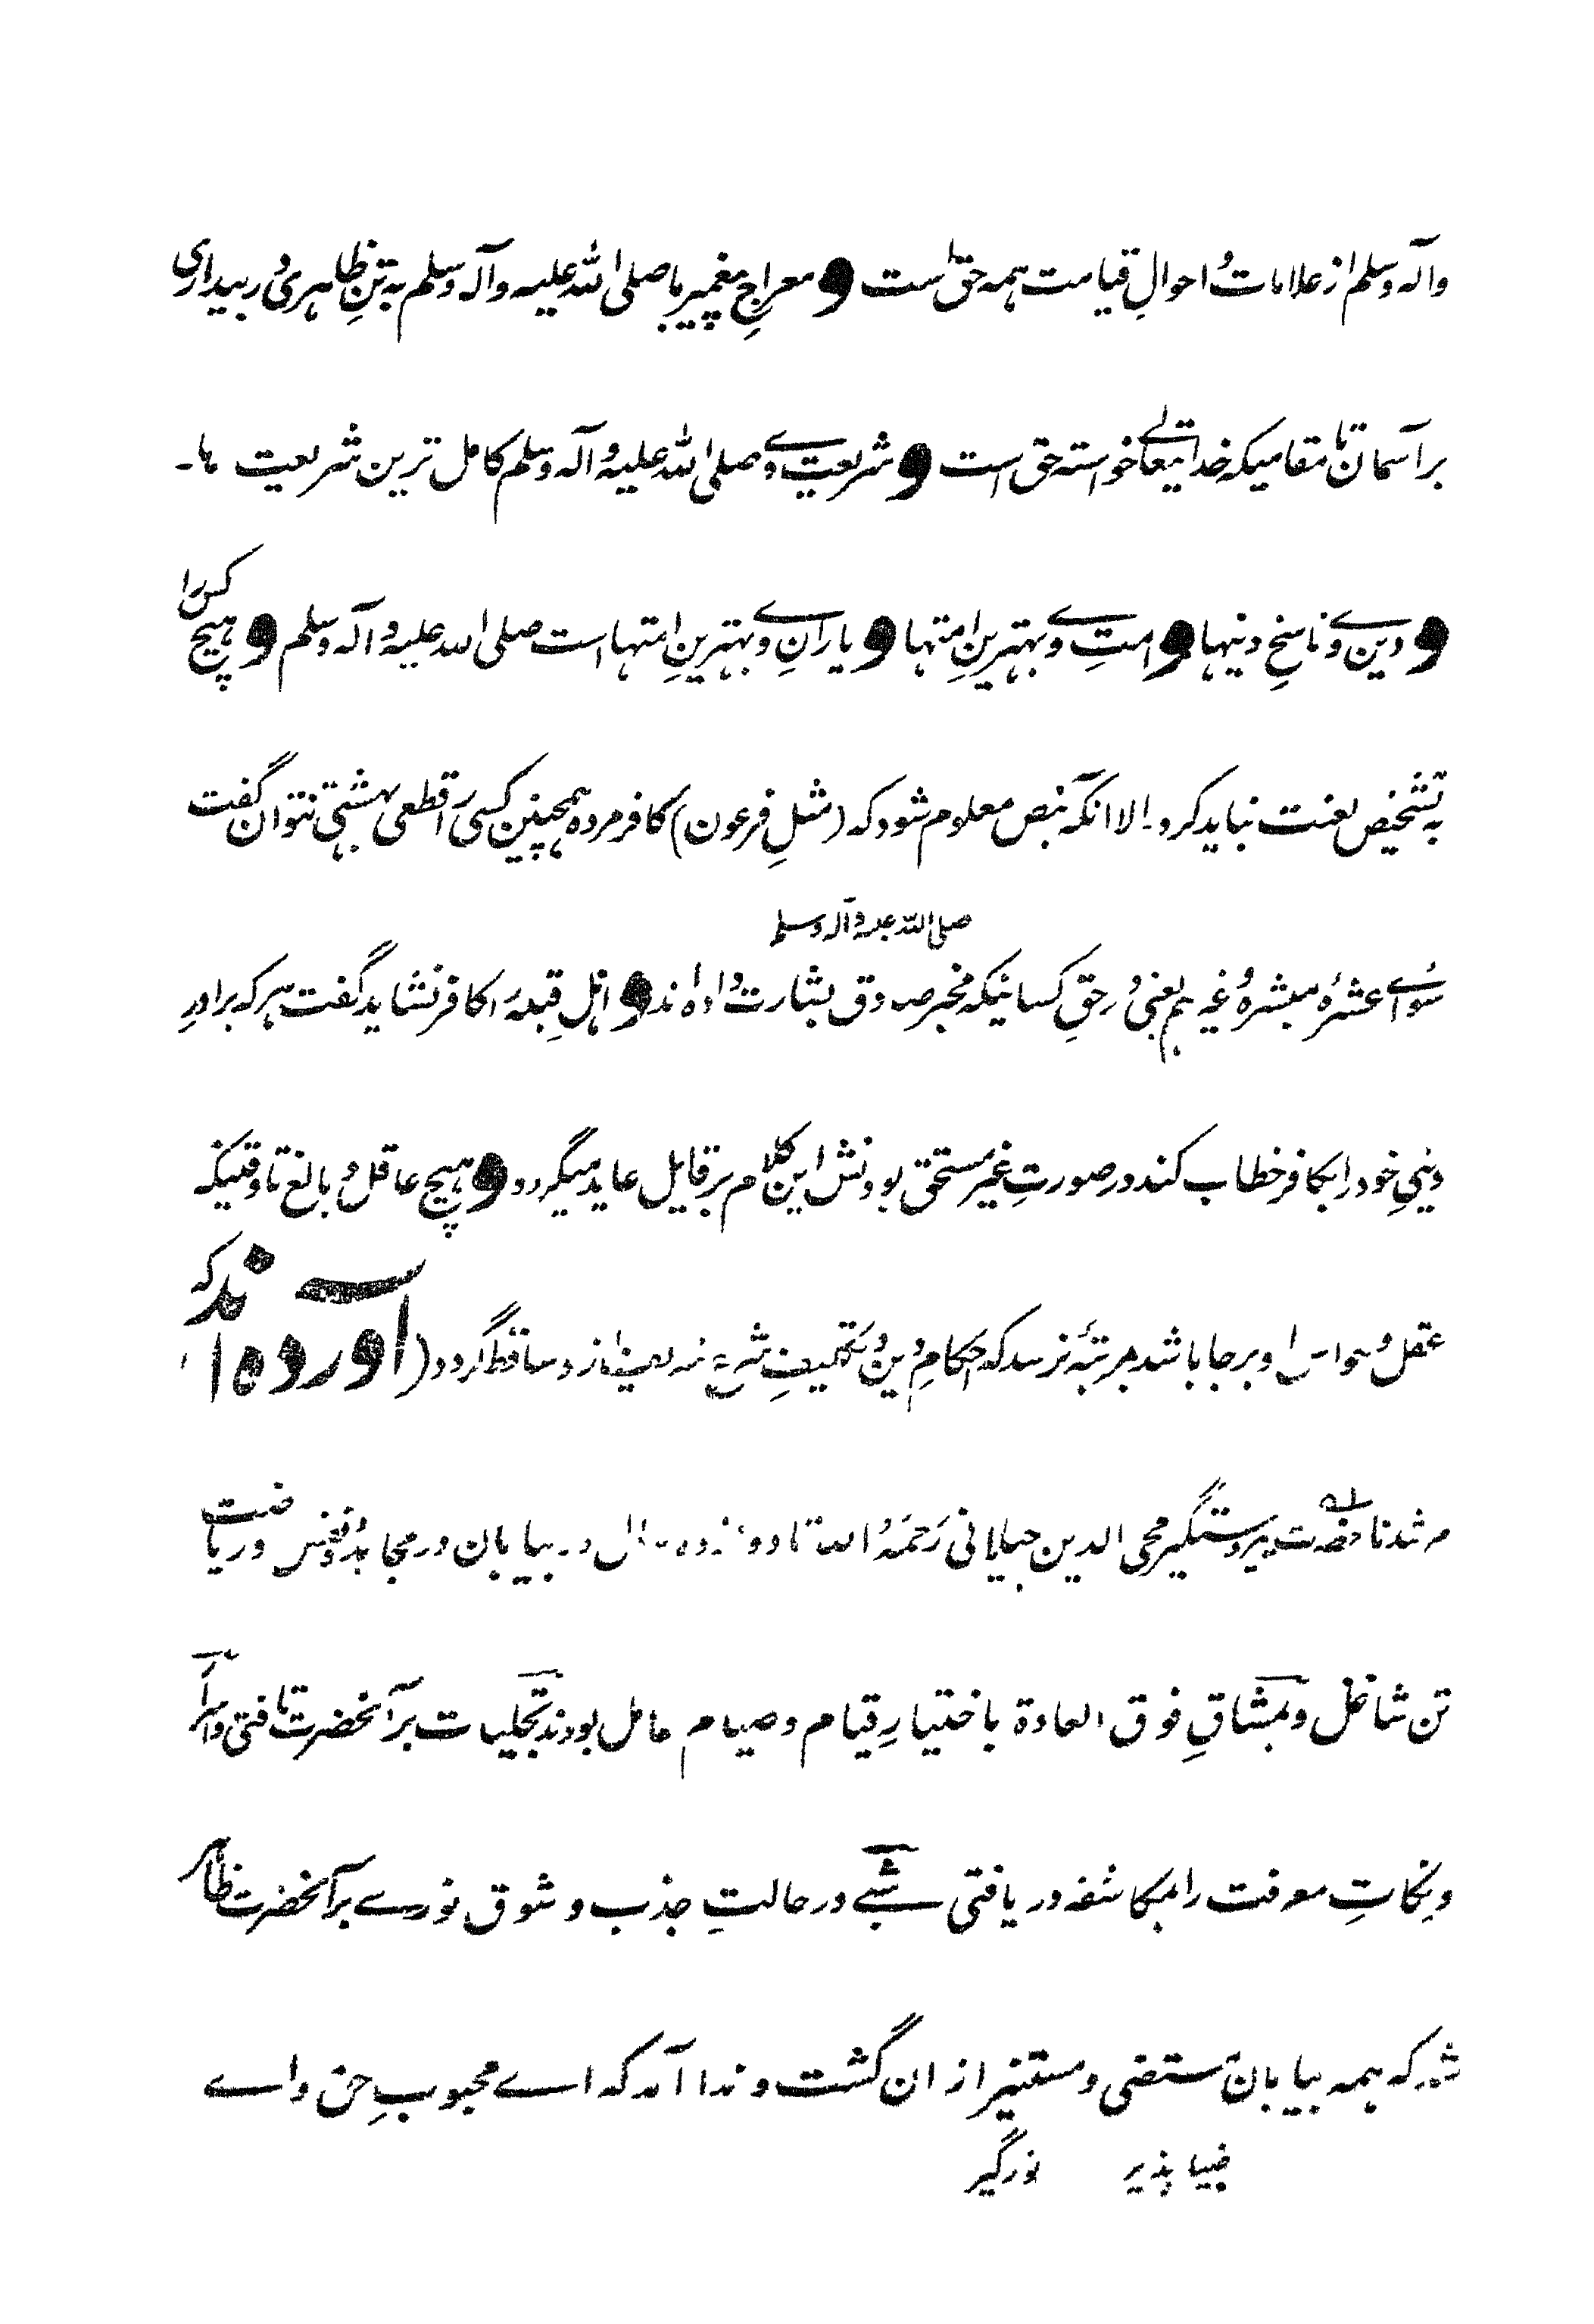 وآلہ وسلم از علامات و احوالِ قیامت ہمہ حق است و معراجِ پیغمبر ما صلی اللہ علیہ وآلہ وسلم بہ تنِ ظاہری و بیداری
بر آسمان تا مقامیکہ خدا تعالے خواستہ حق است و شریعتِ وے صلی اللہ علیہ و آلہ وسلم کامل ترین شریعت ہا۔
و دین وے ناسخِ دینہا و امتِ وے بہترینِ امتہا و یارانِ وے بہترینِ امتہا است صلی اللہ علیہ و آلہ وسلم و ہیچ کس را
بہ تشخیص لعنت نباید کرد۔ الا آنکہ بنص معلوم شود کہ (مثلِ فرعون) کافر مردہ ہمچنین کسی را قطعی بہشتی نتوان گفت
صلی اللہ علیہ وآلہ وسلم
سوائے عشرہ مبشرہ و غیرہم یعنی در حقِ کسانیکہ مخبر صادق بشارت دادہ اند و اہلِ قبلہ را کافر نشاید گفت ہر کہ برادرِ
دینیِ خود را بکافر خطاب کند در صورتِ غیر مستحق بودنش این کلام بر قایل عاید میگردد و ہیچ عاقل و بالغ تا وقتیکہ
عقل و حواس او بر جا باشد بمرتبہ نرسد کہ احکامِ دین و تکلیفِ شرع از و ساقط گردد (آوردہ اند کہ
مرشدنا حضرت پیر دستگیر محی الدین جیلانی رَحمَہُ اللہ تا در بیابان در مجاہدۂ نفس و ریاضت
تن شاغل و بمشاقِ فوق العادة باختیارِ قیام و صیام عامل بودند تجلیات بر آنحضرت تافتی و اسرار
و نکاتِ معرفت را بمکاشفہ دریافتی شبے در حالتِ جذب و شوق نورے بر آنحضرت ظاہر
شد کہ ہمہ بیابان مستضی و مستنیر ازان گشت و ندا آمد کہ اے محبوبِ حق واے
ضیا پذیر نورگیر